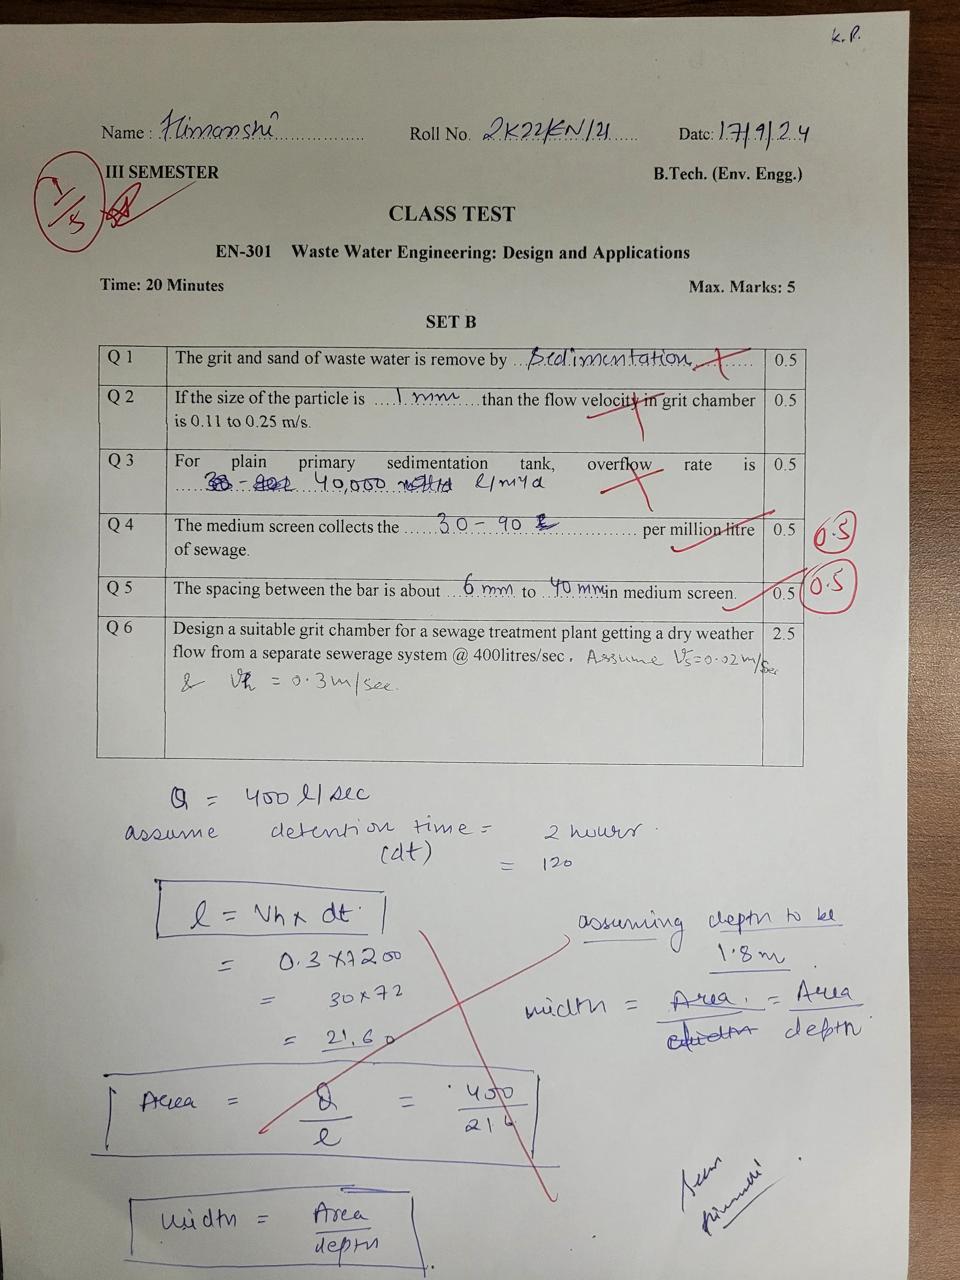 K.P.
Name : Himanshi Roll No. 2K22/EN/21 Date: 17/9/24
III SEMESTER B.Tech. (Env. Engg.)
1/5
CLASS TEST
EN-301 Waste Water Engineering: Design and Applications
Time: 20 Minutes Max. Marks: 5
SET B
Q 1 The grit and sand of waste water is remove by ...Sedimentation... 0.5
Q 2 If the size of the particle is ....1 mm....than the flow velocity in grit chamber 0.5
is 0.11 to 0.25 m/s.
Q 3 For plain primary sedimentation tank, overflow rate is 0.5
40,000 l/m²/d
Q 4 The medium screen collects the ......30-90.................. per million litre 0.5 0.5
of sewage.
Q 5 The spacing between the bar is about ...6 mm to ..40 mm in medium screen. 0.5 0.5
Q 6 Design a suitable grit chamber for a sewage treatment plant getting a dry weather 2.5
flow from a separate sewerage system @ 400litres/sec. Assume Vs=0.02m/sec
& Vh = 0.3m/sec.
Q = 400 l/sec
assume detention time = 2 hours.
(dt) = 120
l = Vh x dt
= 0.3 x 7200
= 30x72
= 21.60
assuming depth to be
1.8m
width = Area = Area
depth
Area = Q = 400
l 216
width = Area
depth
Seen